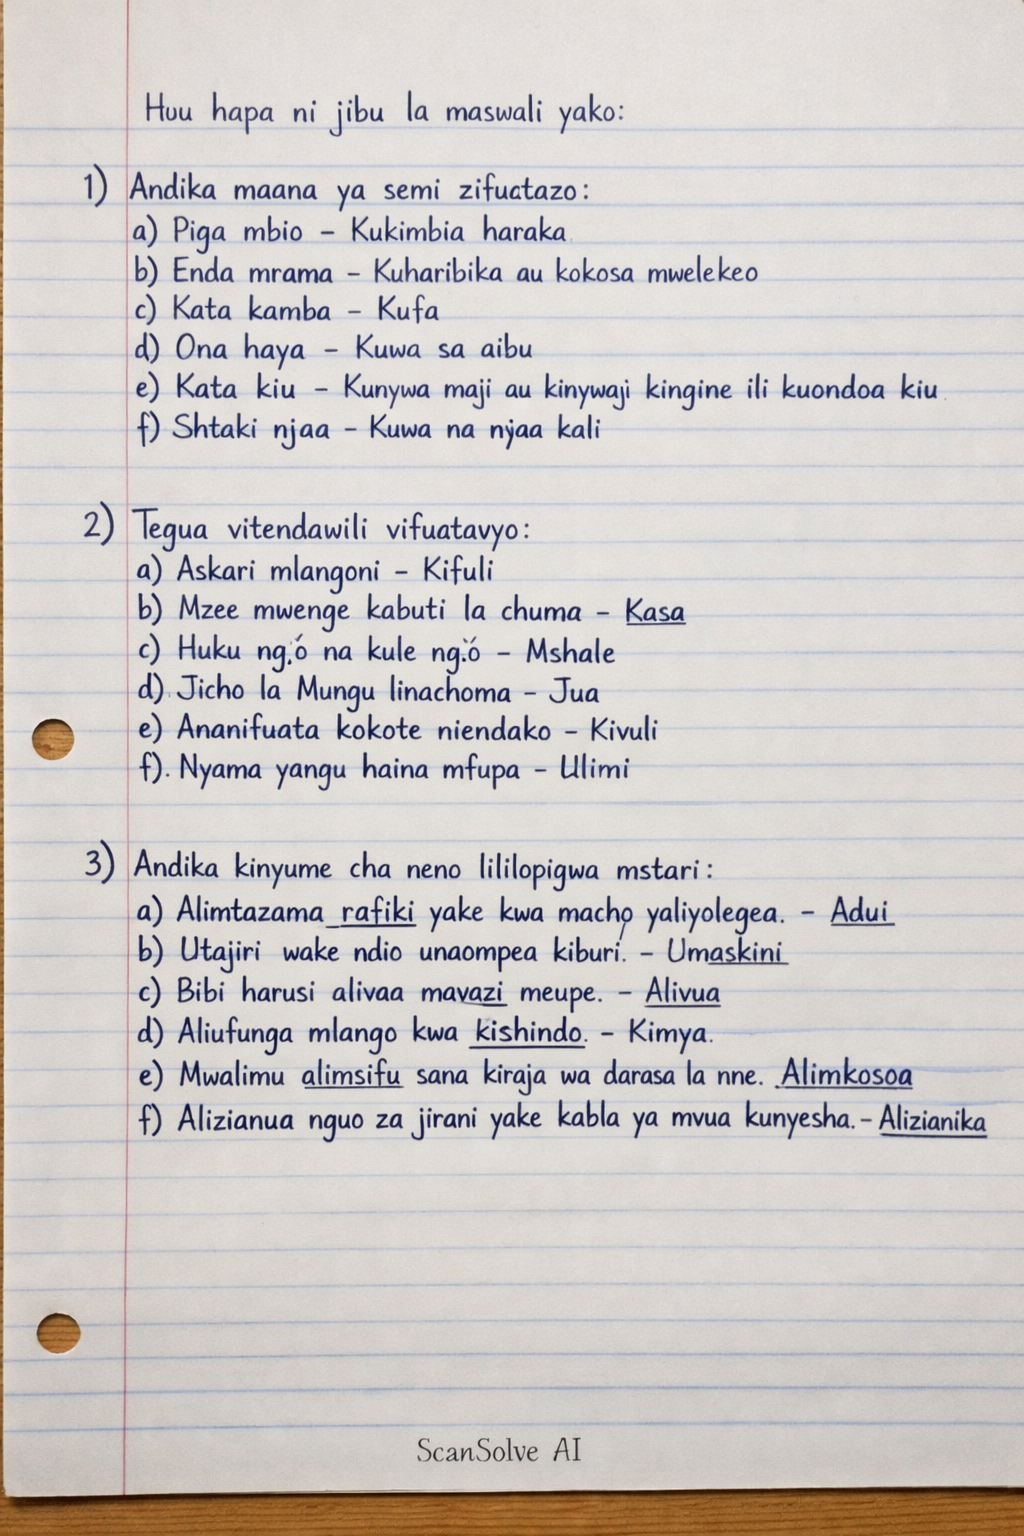 Huu hapa ni jibu la maswali yako:
1) Andika maana ya semi zifuatazo:
a) Piga mbio – Kukimbia haraka
b) Enda mrama – Kuharibika au kokosa mwelekeo
c) Kata kamba – Kufa
d) Ona haya – Kuwa sa aibu
e) Kata kiu – Kunywa maji au kinywaji kingine ili kuondoa kiu.
f) Shtaki njaa – Kuwa na njaa kali
2) Tegua vitendawili vifuatavyo:
a) Askari mlangoni – Kifuli
b) Mzee mwenge kabuti la chuma – Kasa
c) Huku ng.ó na kule ng.ó – Mshale
d). Jicho la Mungu linachoma – Jua
e) Ananifuata kokote niendako – Kivuli
f). Nyama yangu haina mfupa – Ulimi
3) Andika kinyume cha neno lililopigwa mstari:
a) Alimtazama rafiki yake kwa macho yaliyolegea. – Adui
b) Utajiri wake ndio unaompea kiburi. – Umaskini
c) Bibi harusi alivaa mavazi meupe. – Alivua
d) Aliufunga mlango kwa kishindo. – Kimya.
e) Mwalimu alimsifu sana kiraja wa darasa la nne. Alimkosoa
f) Alizianua nguo za jirani yake kabla ya mvua kunyesha. – Alizianika
ScanSolve AI